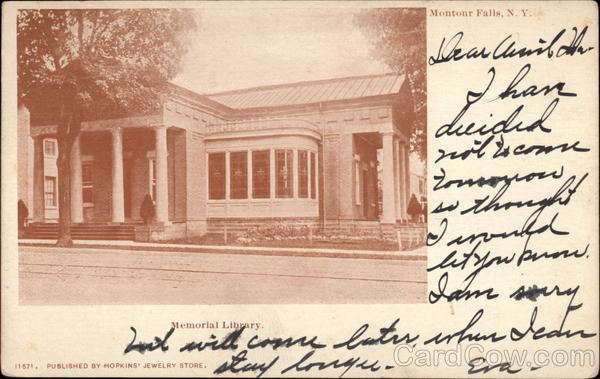 Montour Falls, N. Y.
Dear Aunt
I have
decided
not to come
tomorrow
so thought
I would
let you know.
I am sorry
Memorial Library.
but will come later, when I can
stay longer. Eva.
11571. PUBLISHED BY HOPKINS' JEWELRY STORE.
CardCow.com